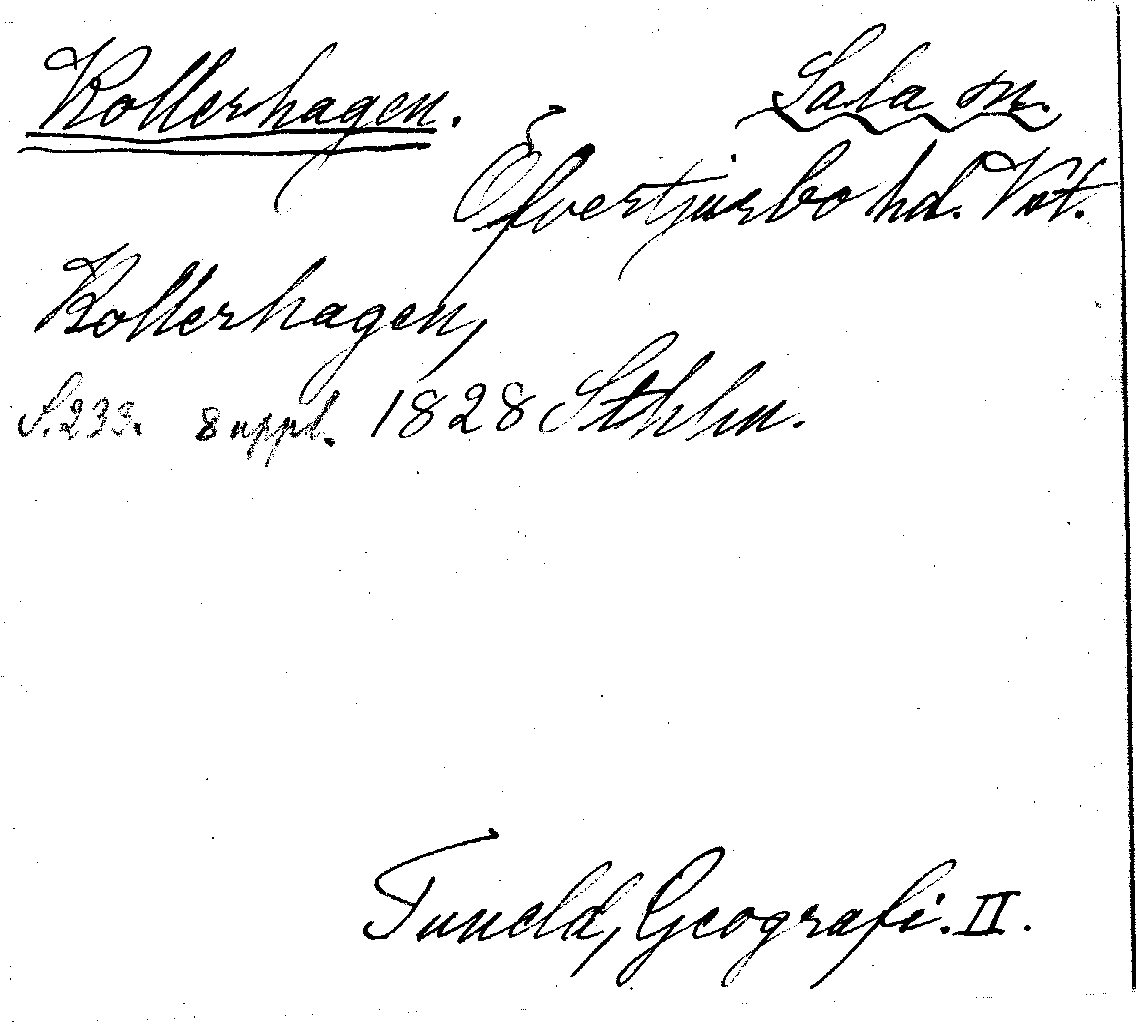 Kollerhagen. Sala sn.
Öfvertjurbo hd. Vst.
Kollerhagen,
S. 233. 8 uppl. 1828 Sthlm.
Tuneld, Geografi. II.